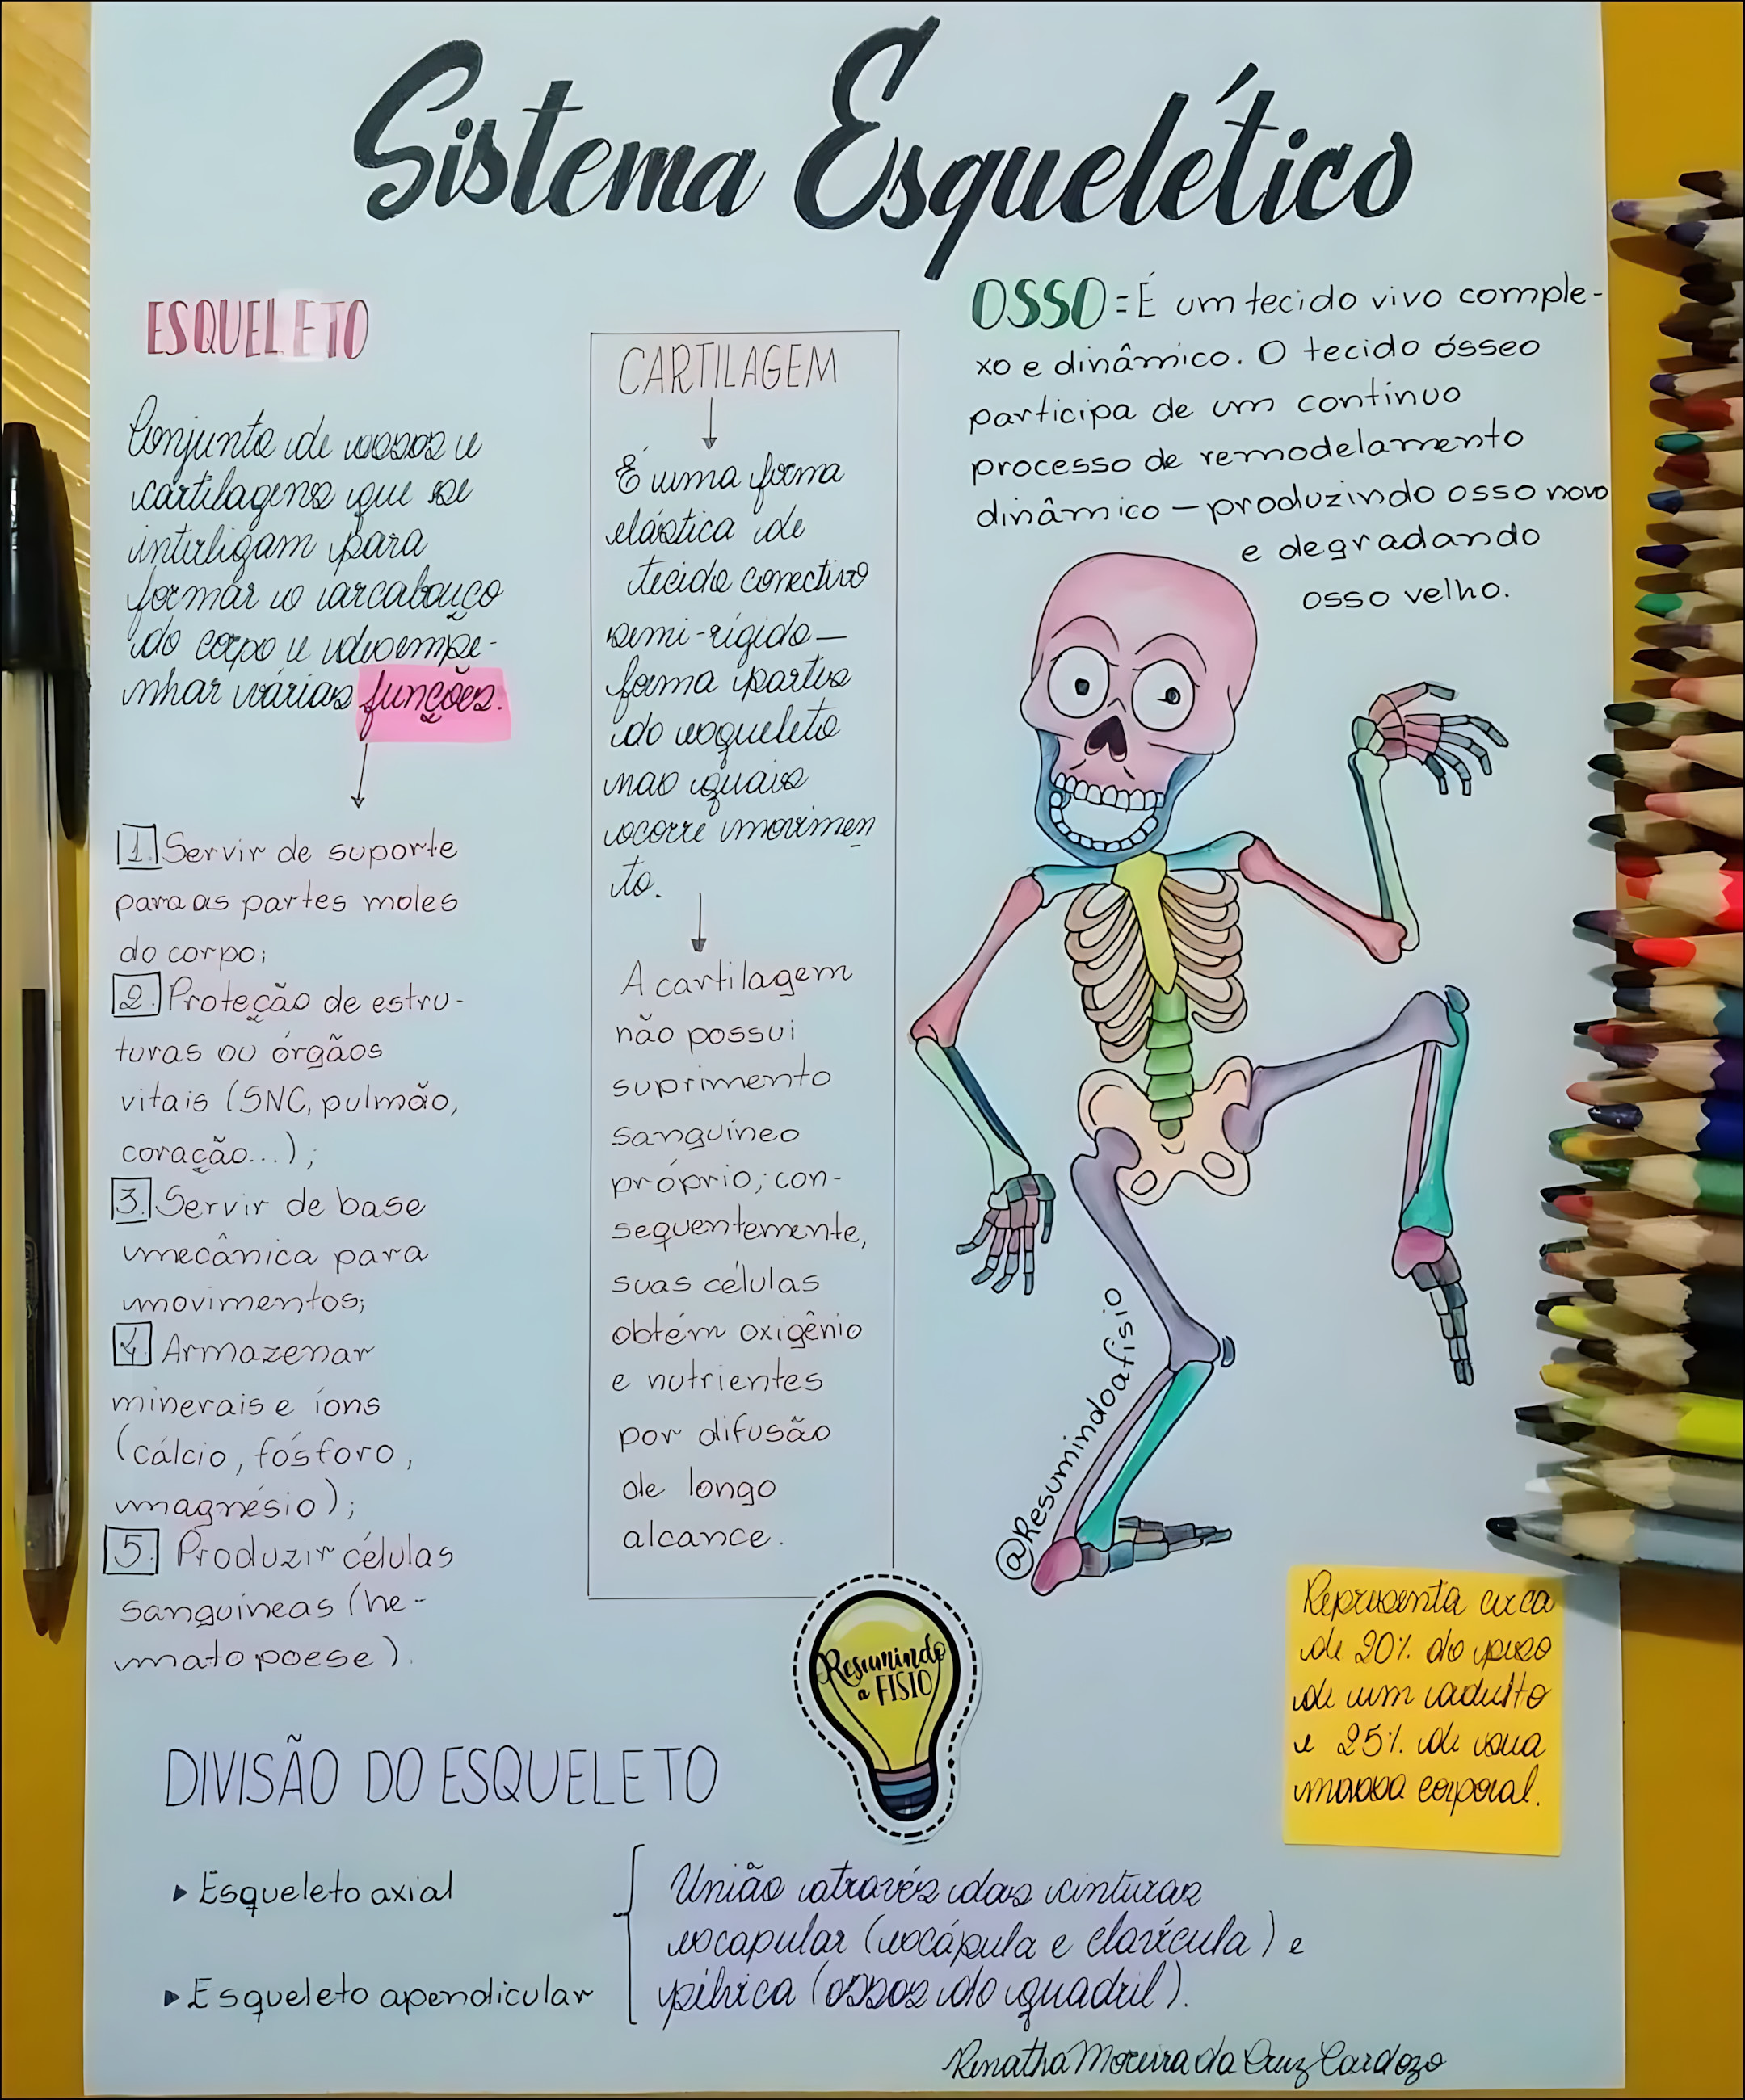 Sistema Esquelético
ESQUELETO
Conjunto de ossos e
cartilagens que se
interligam para
formar o arcabouço
do corpo e desempe-
nhar várias funções.
1. Servir de suporte
para as partes moles
do corpo;
2. Proteção de estru-
turas ou órgãos
vitais (SNC, pulmão,
coração...);
3. Servir de base
mecânica para
movimentos;
4. Armazenar
minerais e íons
(cálcio, fósforo,
magnésio);
5. Produzir células
sanguíneas (he-
matopoese).
CARTILAGEM
É uma forma
elástica de
tecido conectivo
semi-rígido—
forma partes
do esqueleto
nas quais
ocorre movimen
to.
A cartilagem
não possui
suprimento
sanguíneo
próprio; con-
sequentemente,
suas células
obtém oxigênio
e nutrientes
por difusão
de longo
alcance.
OSSO = É um tecido vivo comple-
xo e dinâmico. O tecido ósseo
participa de um contínuo
processo de remodelamento
dinâmico — produzindo osso novo
e degradando
osso velho.
@Resumindoafisio
Resumindo
a FISIO
Representa cerca
de 20% do peso
de um adulto
e 25% de sua
massa corporal.
DIVISÃO DO ESQUELETO
▸ Esqueleto axial
▸ Esqueleto apendicular
União através das cinturas
escapular (escápula e clavícula) e
pélvica (ossos do quadril).
Renatha Moreira da Cruz Cardozo